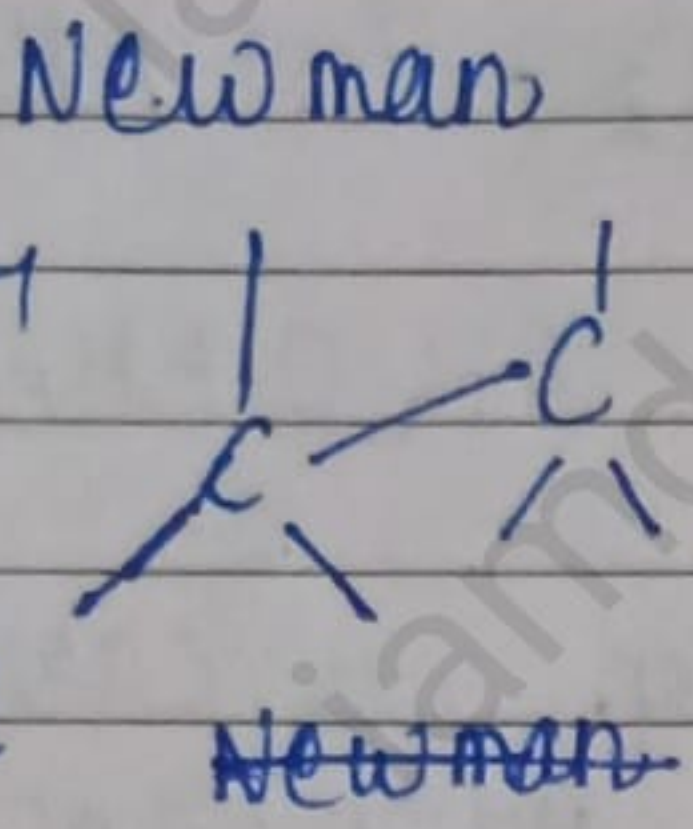 Newman
C
C
Newman